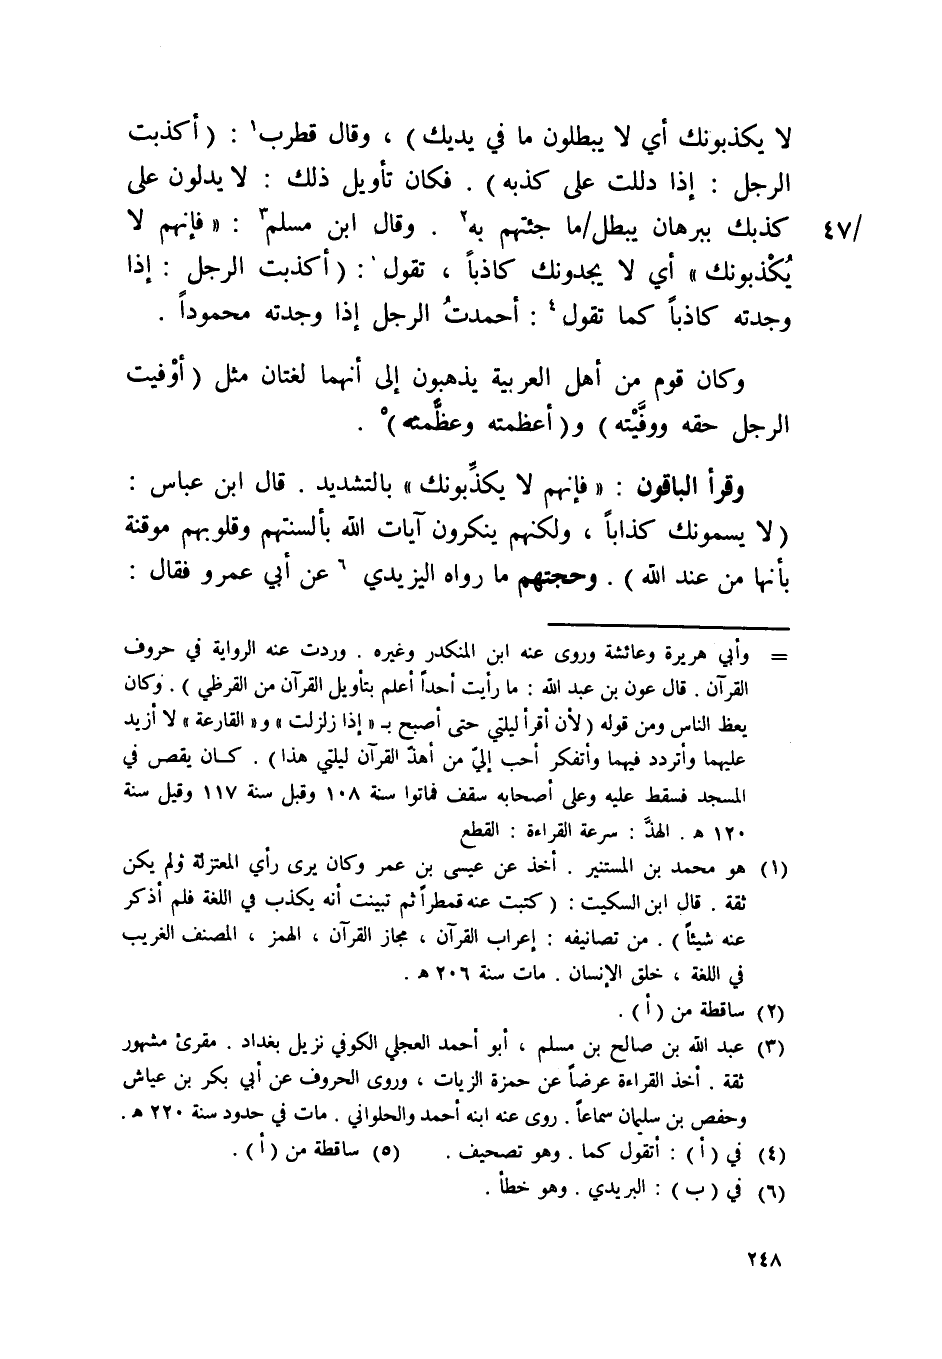 لا يكذبونك أي لا يبطلون ما في يديك ) ، وقال قطرب١ : ( أكذبت
الرجل : إذا دللت على كذبه ) . فكان تأويل ذلك : لا يدلون على
كذبك ببرهان يبطل/ما جئتهم به٢ . وقال ابن مسلم٣ : « فإنهم لا
/٤٧
يُكْذبونك » أي لا يجدونك كاذباً ، تقول : ( أكذبت الرجل : إذا
وجدته كاذباً كما تقول٤ : أحمدتُ الرجل إذا وجدته محموداً .
وكان قوم من أهل العربية يذهبون إلى أنهما لغتان مثل ( أوْفيت
الرجل حقه ووفَّيْته ) و( أعظمته وعظَّمته )٥ .
وقرأ الباقون : « فإنهم لا يكذِّبونك » بالتشديد . قال ابن عباس :
( لا يسمونك كذاباً ، ولكنهم ينكرون آيات الله بألسنتهم وقلوبهم موقنة
بأنها من عند الله ) . وحجتهم ما رواه اليزيدي٦ عن أبي عمرو فقال :
= وأبي هريرة وعائشة وروى عنه ابن المنكدر وغيره . وردت عنه الرواية في حروف
القرآن . قال عون بن عبد الله : ما رأيت أحداً أعلم بتأويل القرآن من القرظي ) . وكان
يعظ الناس ومن قوله ( لأن أقرأ ليلتي حتى أصبح بـ « إذا زلزلت » و« القارعة » لا أزيد
عليهما وأتردد فيهما وأتفكر أحب إليّ من أهذّ القرآن ليلتي هذا ) . كـان يقصّ في
المسجد فسقط عليه وعلى أصحابه سقف فماتوا سنة ١٠٨ وقبل سنة ١١٧ وقيل سنة
١٢٠ هـ . الهذَّ : سرعة القراءة : القطع
(١) هو محمد بن المستنير . أخذ عن عيسى بن عمر وكان يرى رأي المعتزلة ولم يكن
ثقة . قال ابن السكيت : ( كتبت عنه قمطراً ثم تبينت أنه يكذب في اللغة فلم أذكر
عنه شيئاً ) . من تصانيفه : إعراب القرآن ، مجاز القرآن ، الهمز ، المصنف الغريب
في اللغة ، خلق الإنسان . مات سنة ٢٠٦ هـ .
(٢) ساقطة من ( أ ) .
(٣) عبد الله بن صالح بن مسلم ، أبو أحمد العجلي الكوفي نزيل بغداد . مقرئ مشهور
ثقة . أخذ القراءة عرضاً عن حمزة الزيات ، وروى الحروف عن أبي بكر بن عياش
وحفص بن سليمان سماعاً . روى عنه ابنه أحمد والحلواني . مات في حدود سنة ٢٢٠ هـ .
(٤) في ( أ ) : أتقول كما . وهو تصحيف . (٥) ساقطة من ( أ ) .
(٦) في ( ب ) : البريدي . وهو خطأ .
٢٤٨